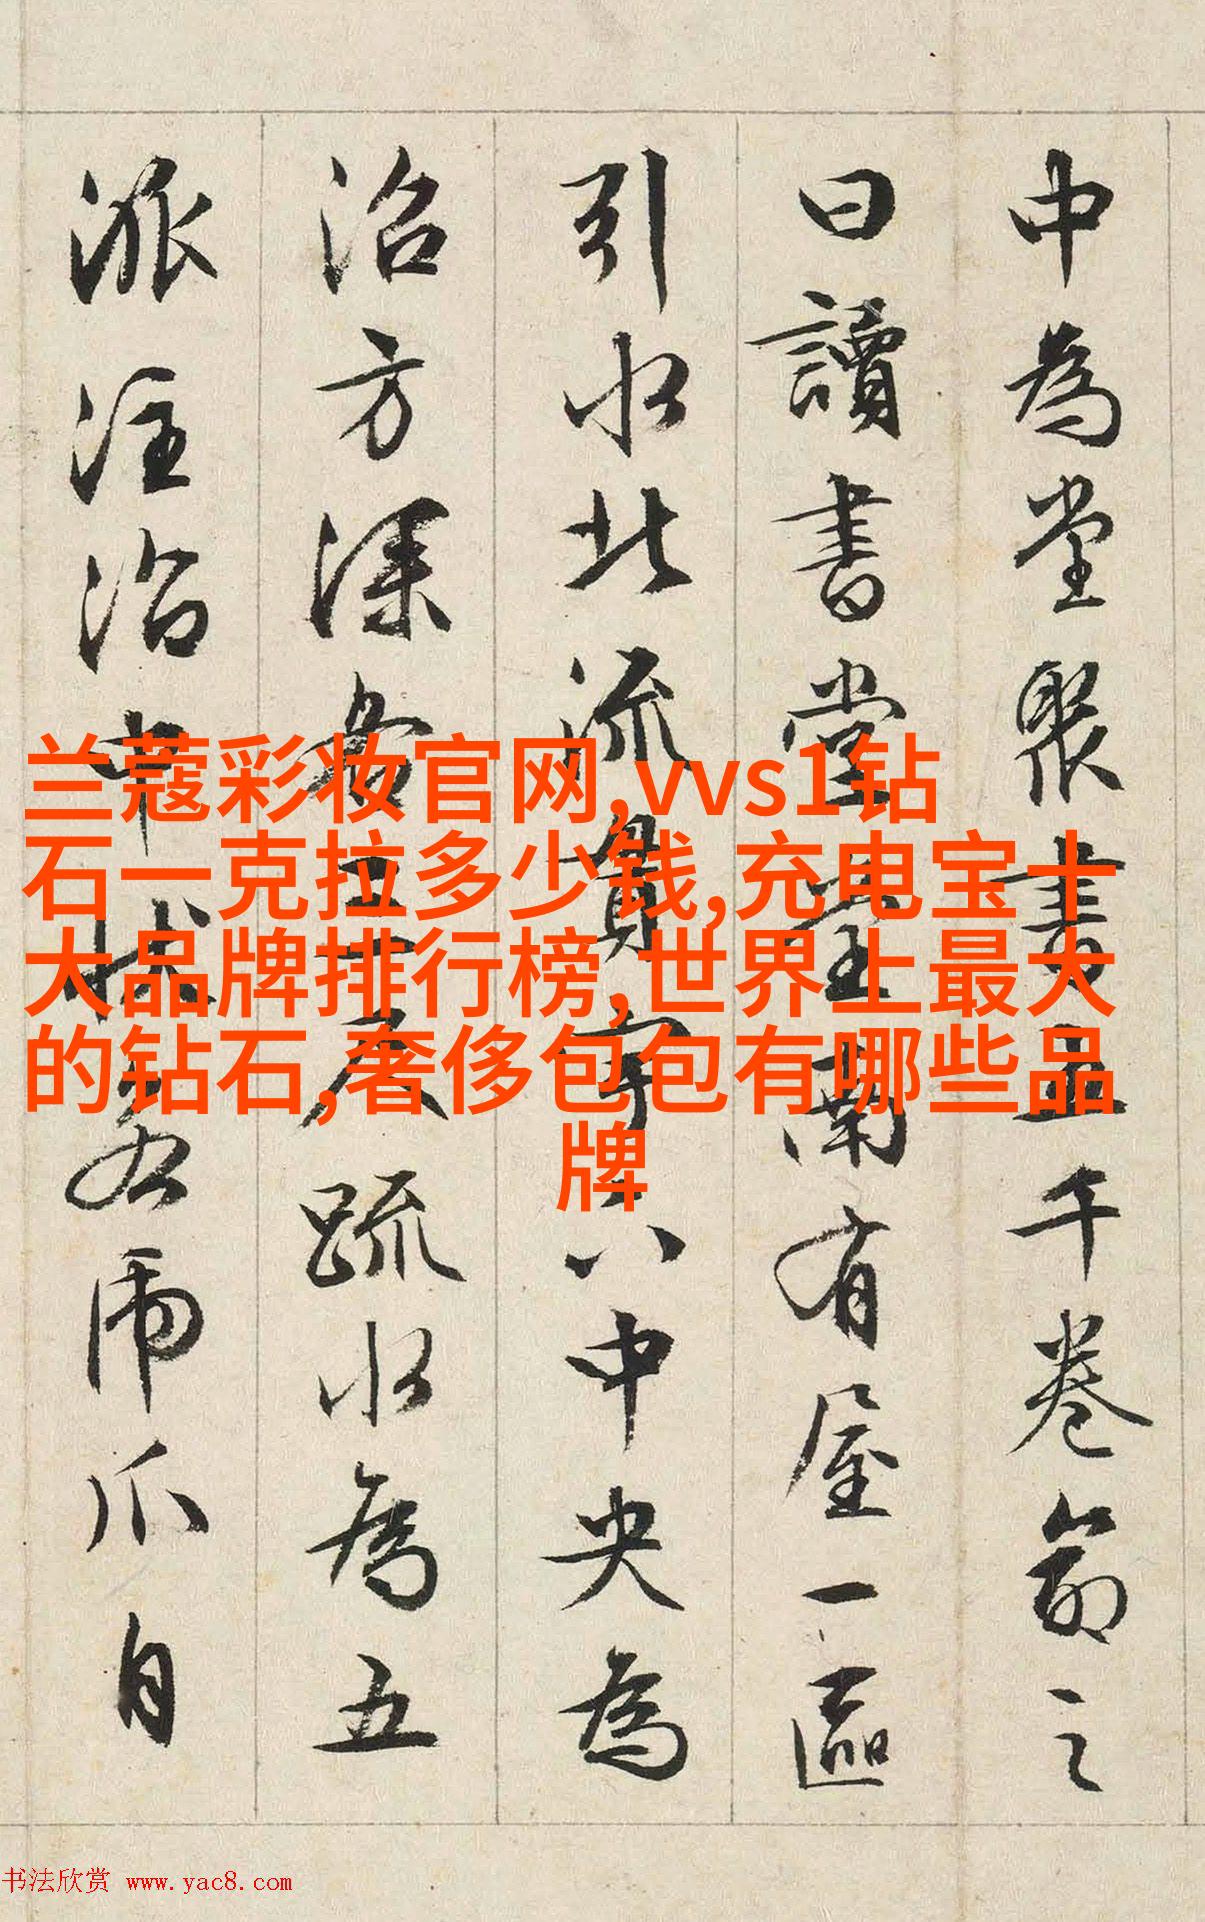 中為堂聚書五千卷命之
曰讀書堂堂南有屋一區
引水北流貫宇下中央為
沼方深各三尺疏水為五
派注沼中狀若虎爪自
兰蔻彩妆官网,vvs1钻
石一克拉多少钱,充电宝十
大品牌排行榜,世界上最大
的钻石,奢侈包包有哪些品
牌
书法欣赏 www.yac8.com